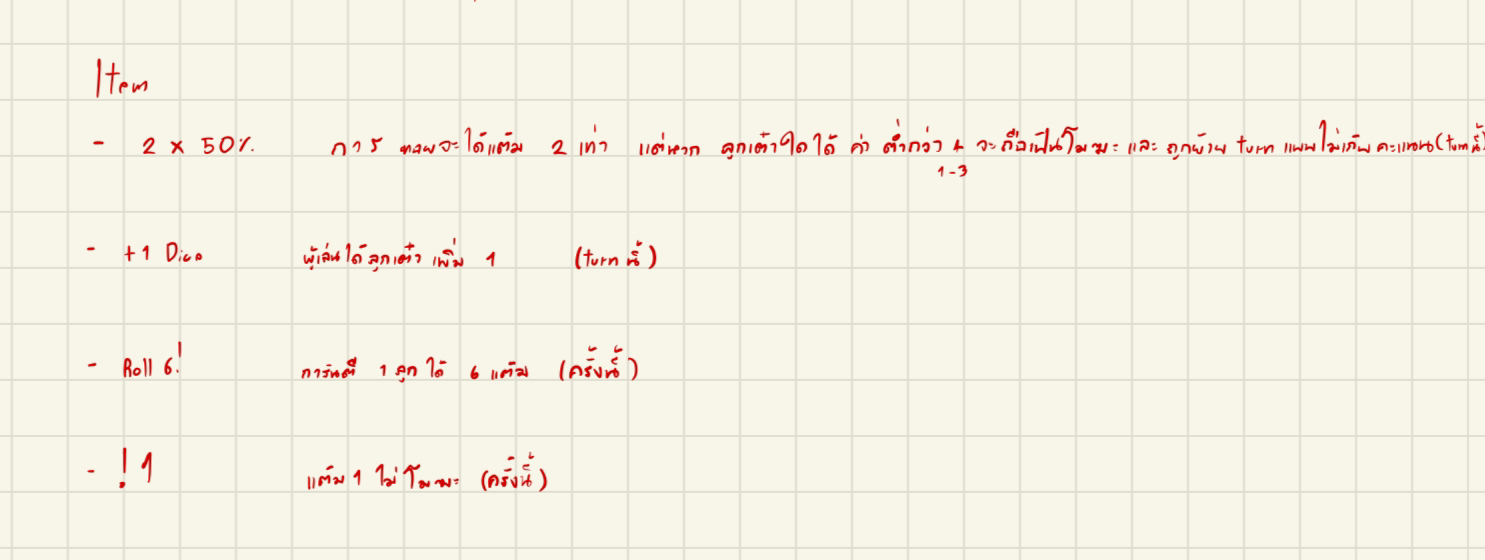 Item
- 2 x 50% การ ทอยจะได้แต้ม 2 เท่า แต่หาก ลูกเต๋าใดได้ ค่า ต่ำกว่า 4 จะถือเป็นโมฆะ และ ถูกข้าม turn แบบไม่เก็บคะแนน (turn นี้)
1-3
- +1 Dice ผู้เล่นได้ลูกเต๋า เพิ่ม 1 (turn นี้)
- Roll 6! การันตี 1 ลูก ได้ 6 แต้ม (ครั้งนี้)
- !1 แต้ม 1 ไม่โมฆะ (ครั้งนี้)